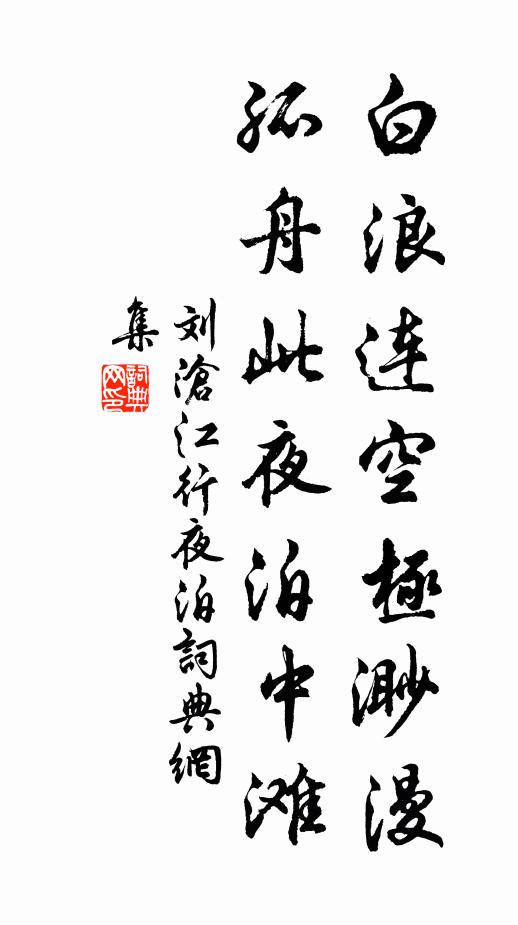 白浪連空極渺漫
孤舟此夜泊中滩
刘滄江行夜泊詞典網
集
詞典网印